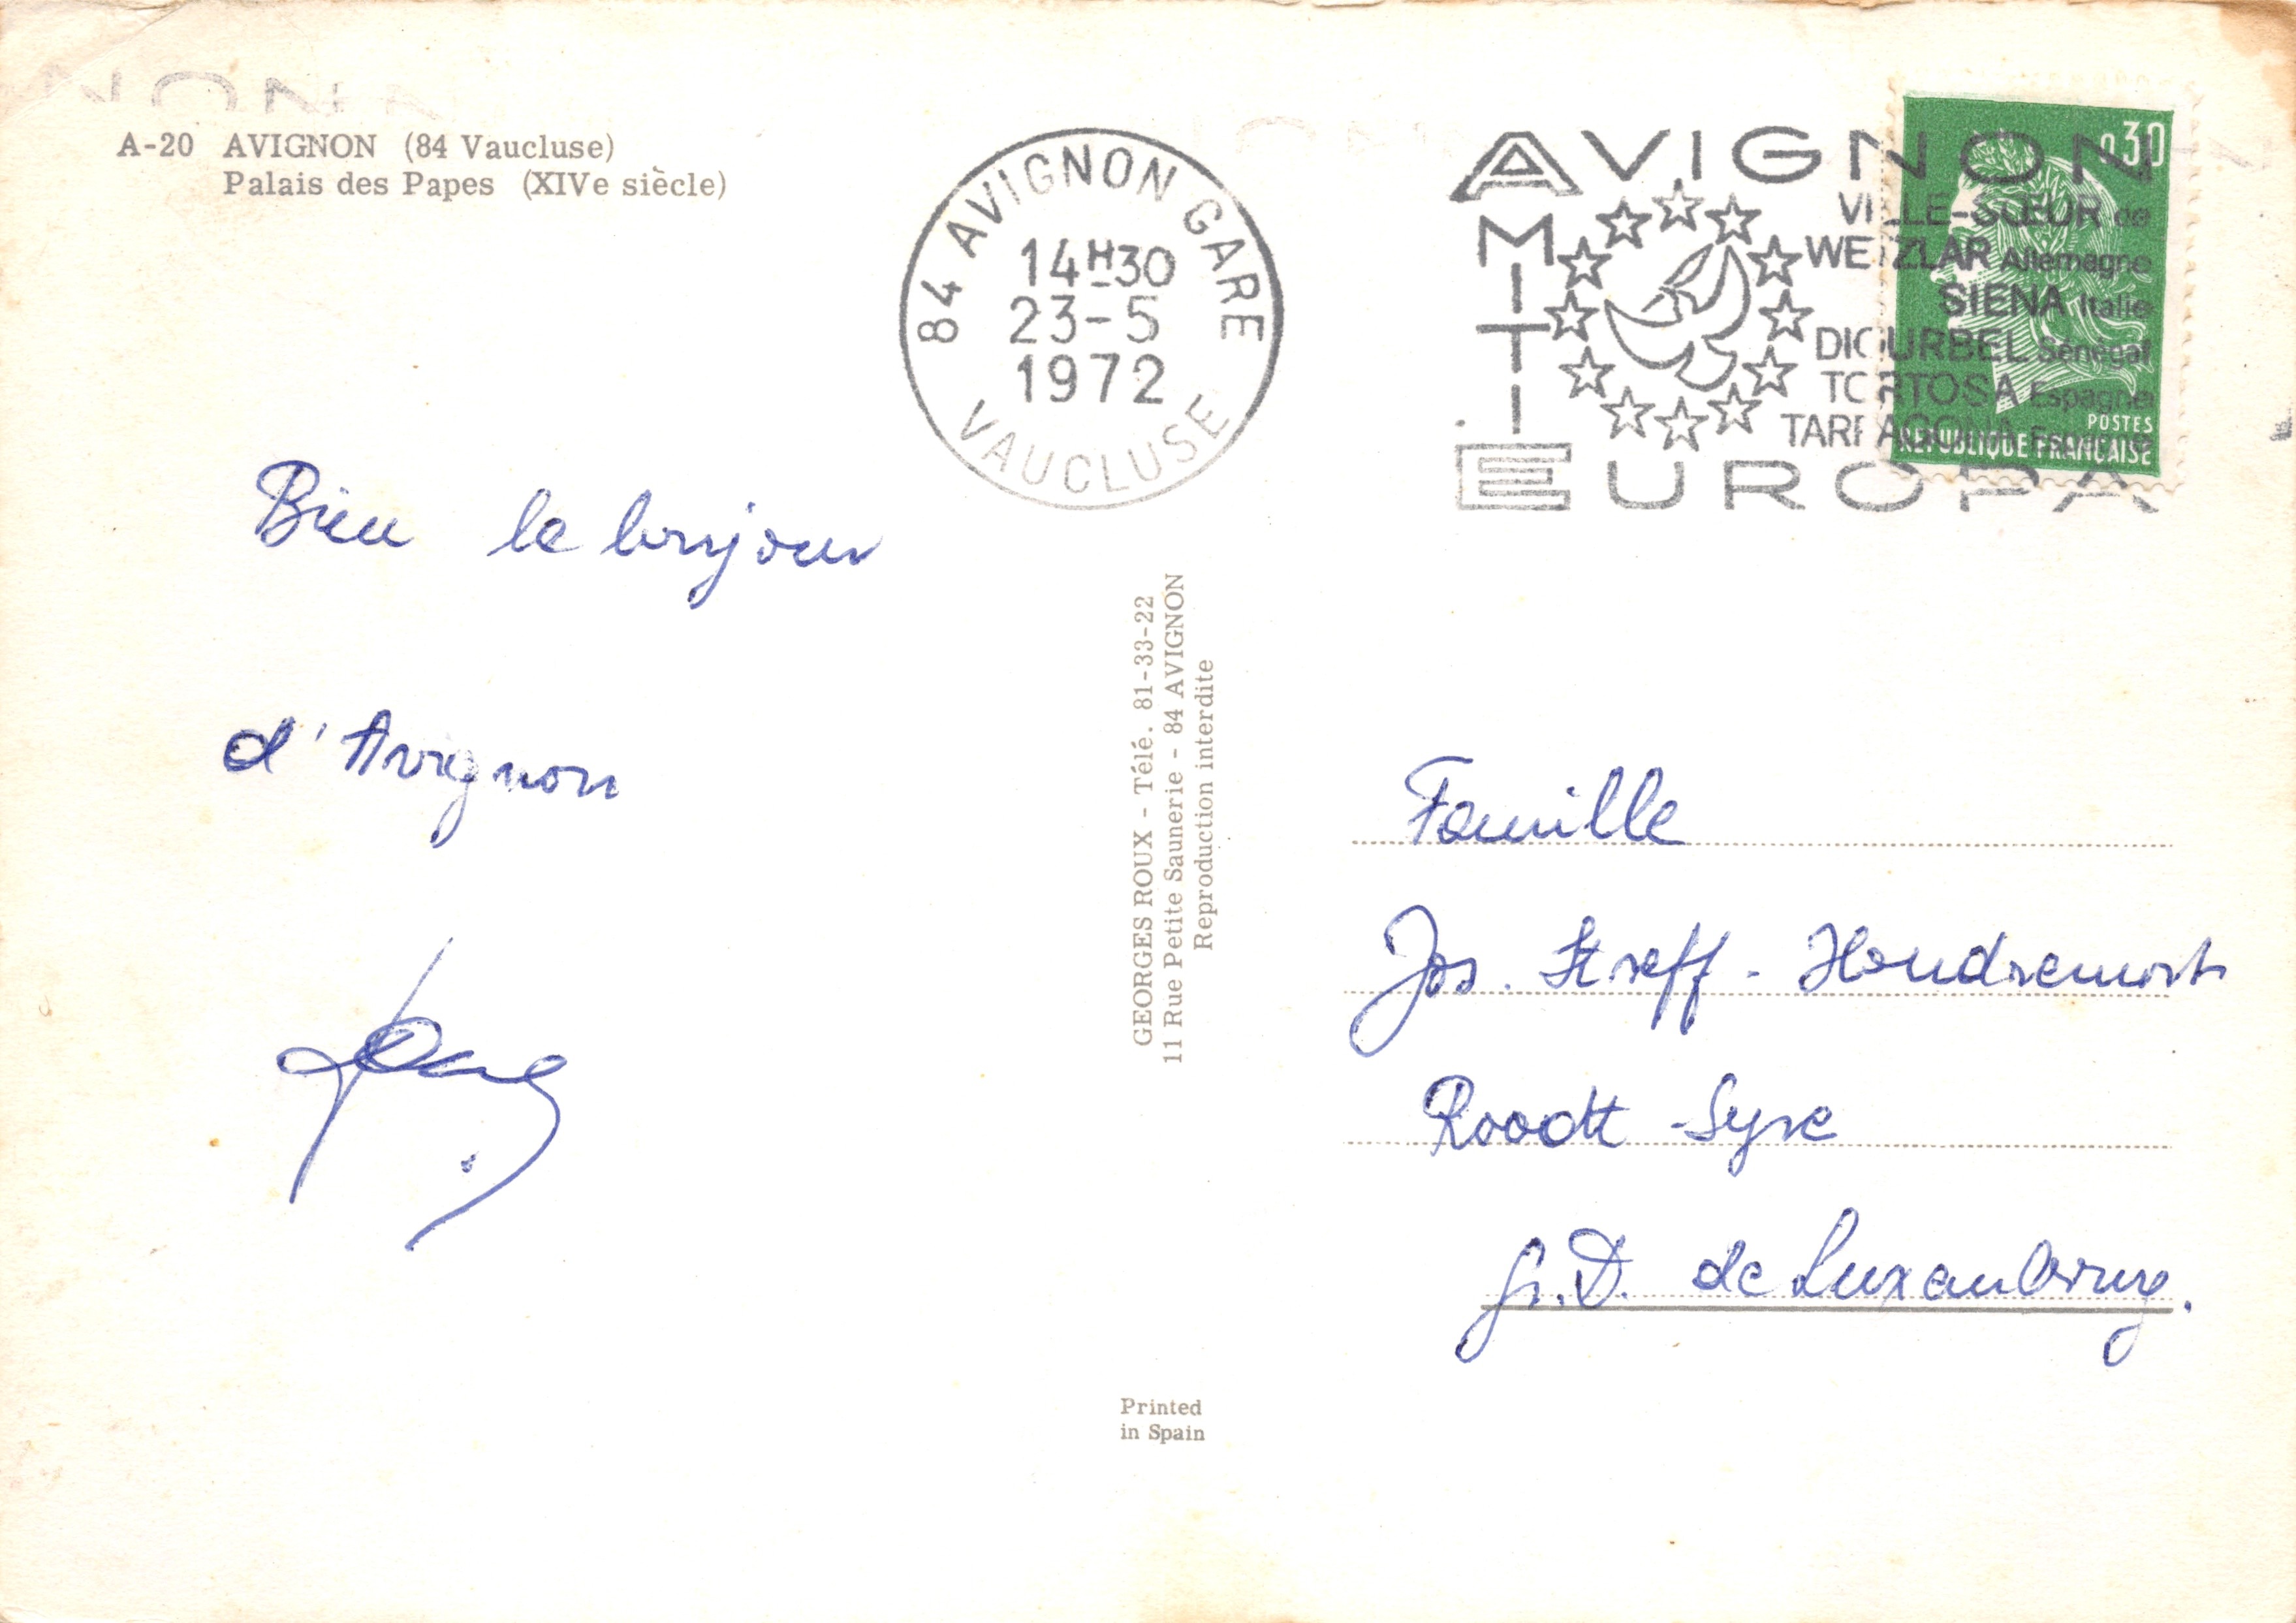 A-20 AVIGNON (84 Vaucluse)
Palais des Papes (XIVe siècle)
84 AVIGNON GARE
14H30
23-5
1972
VAUCLUSE
AVIGNON
AMITIE
VILLE-SŒUR de
WETZLAR Allemagne
SIENA Italie
DIOURBEL Sénégal
TORTOSA Espagne
TARRAGONA Espagne
EUROPA
0,30
POSTES
REPUBLIQUE FRANÇAISE
Bien le bonjour
d'Avignon
GEORGES ROUX - Télé. 81-33-22
11 Rue Petite Saunerie - 84 AVIGNON
Reproduction interdite
Famille
Jos. Streff - Houdremont
Roodt-Syre
Gr. D. de Luxembourg.
Printed
in Spain